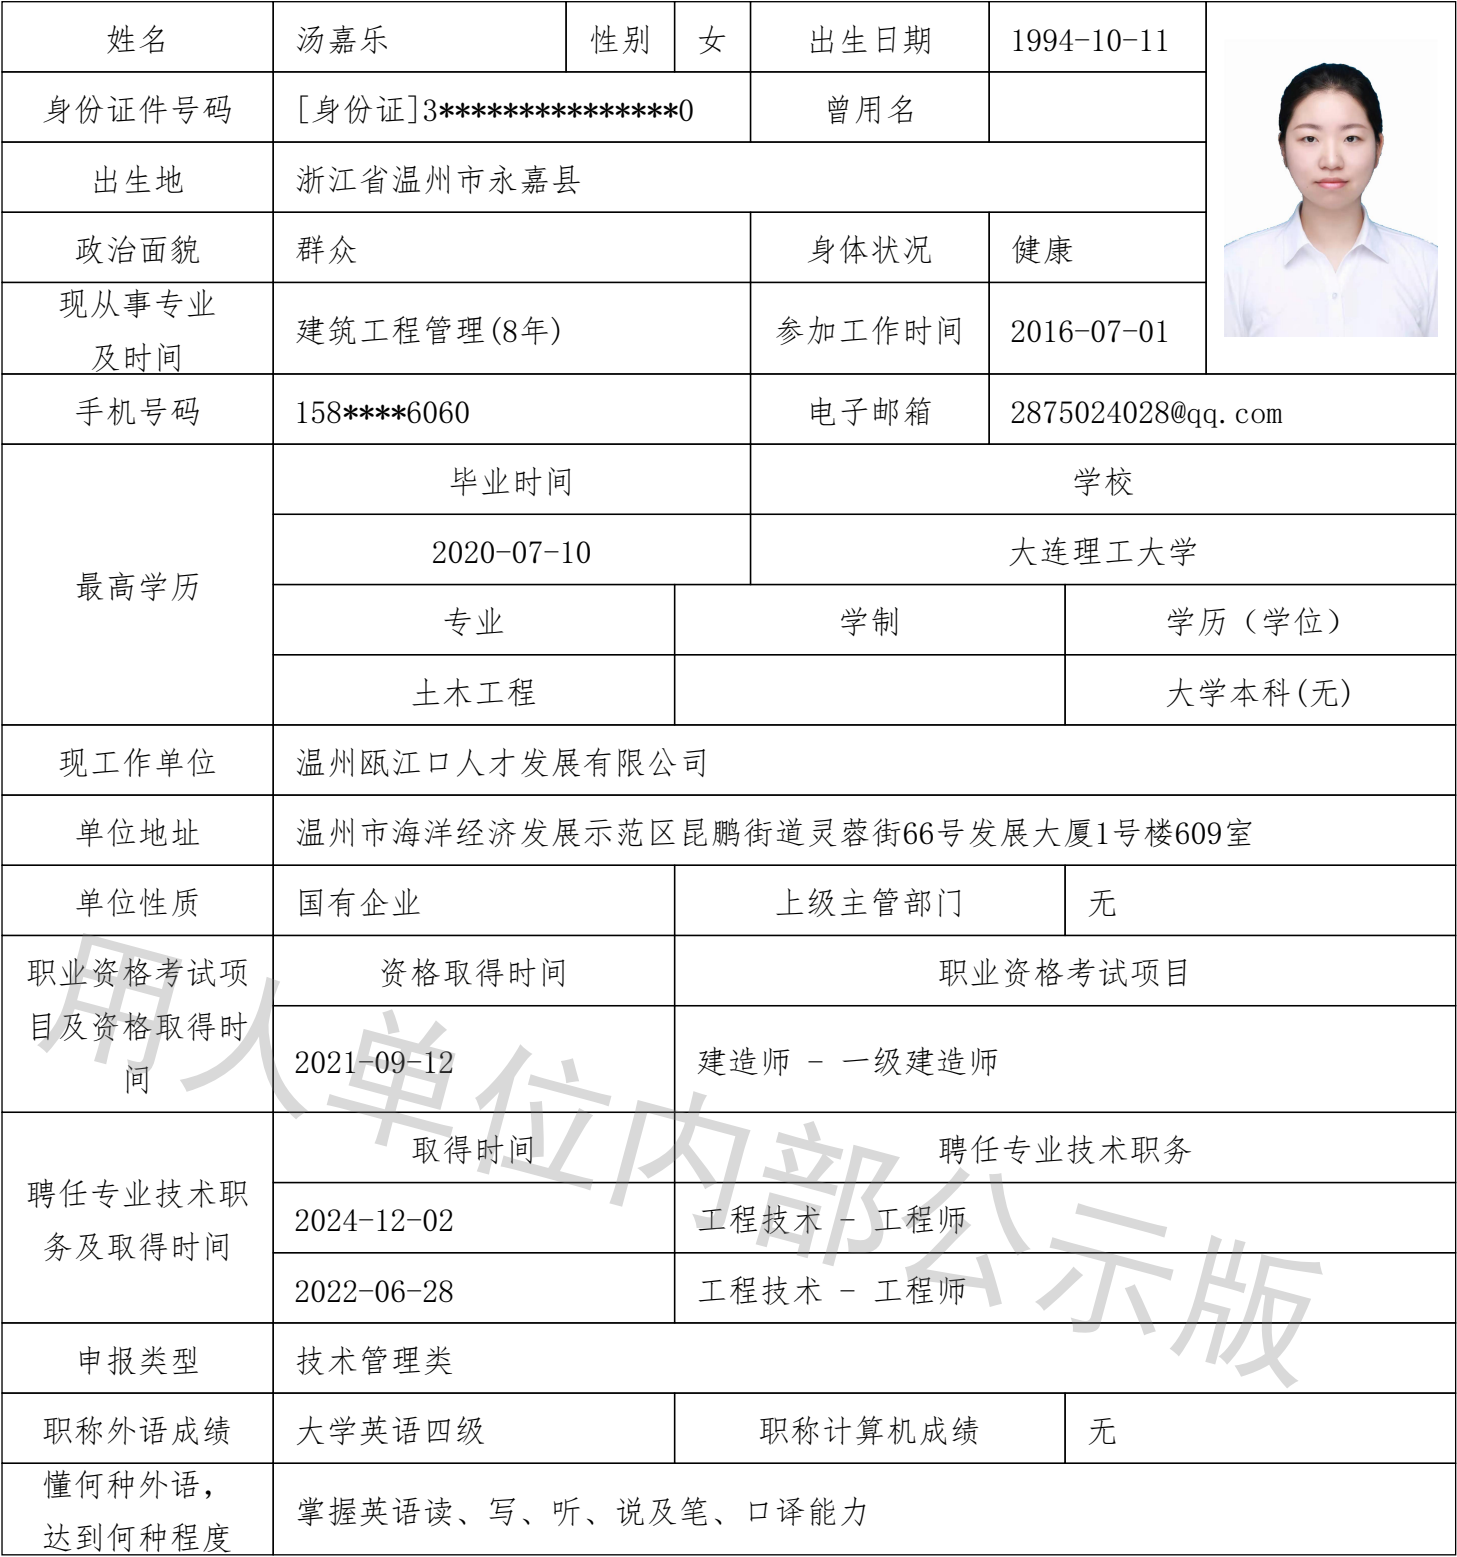 姓名 汤嘉乐 性别 女 出生日期 1994-10-11
身份证件号码 [身份证]3***************0 曾用名
出生地 浙江省温州市永嘉县
政治面貌 群众 身体状况 健康
现从事专业
及时间 建筑工程管理(8年) 参加工作时间 2016-07-01
手机号码 158****6060 电子邮箱 2875024028@qq.com
最高学历
毕业时间 学校
2020-07-10 大连理工大学
专业 学制 学历（学位）
土木工程 大学本科(无)
现工作单位 温州瓯江口人才发展有限公司
单位地址 温州市海洋经济发展示范区昆鹏街道灵蓉街66号发展大厦1号楼609室
单位性质 国有企业 上级主管部门 无
职业资格考试项
目及资格取得时
间
资格取得时间 职业资格考试项目
2021-09-12 建造师 - 一级建造师
聘任专业技术职
务及取得时间
取得时间 聘任专业技术职务
2024-12-02 工程技术 - 工程师
2022-06-28 工程技术 - 工程师
申报类型 技术管理类
职称外语成绩 大学英语四级 职称计算机成绩 无
懂何种外语，
达到何种程度 掌握英语读、写、听、说及笔、口译能力
用人单位内部公示版